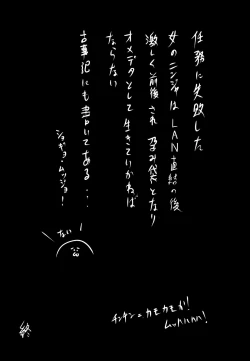 任務に失敗した
女のニンジャはLAN直結の後
激しく前後され孕み袋となり
オメデタとして生きていかねば
ならない
古事記にも書いてある・・・
ショギョ・ムッジョ!
ない
終